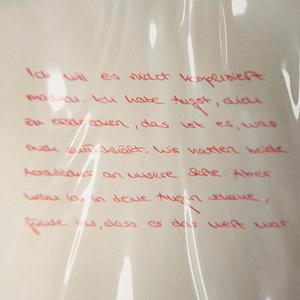 Ich will es nicht kompliziert
machen. Ich habe Angst, dich
zu, das ist es, was
mich. Wir hatten beide
an unsere Seite. Aber
wenn ich in deine Augen schaue,
fühle ich, dass es das wert war.